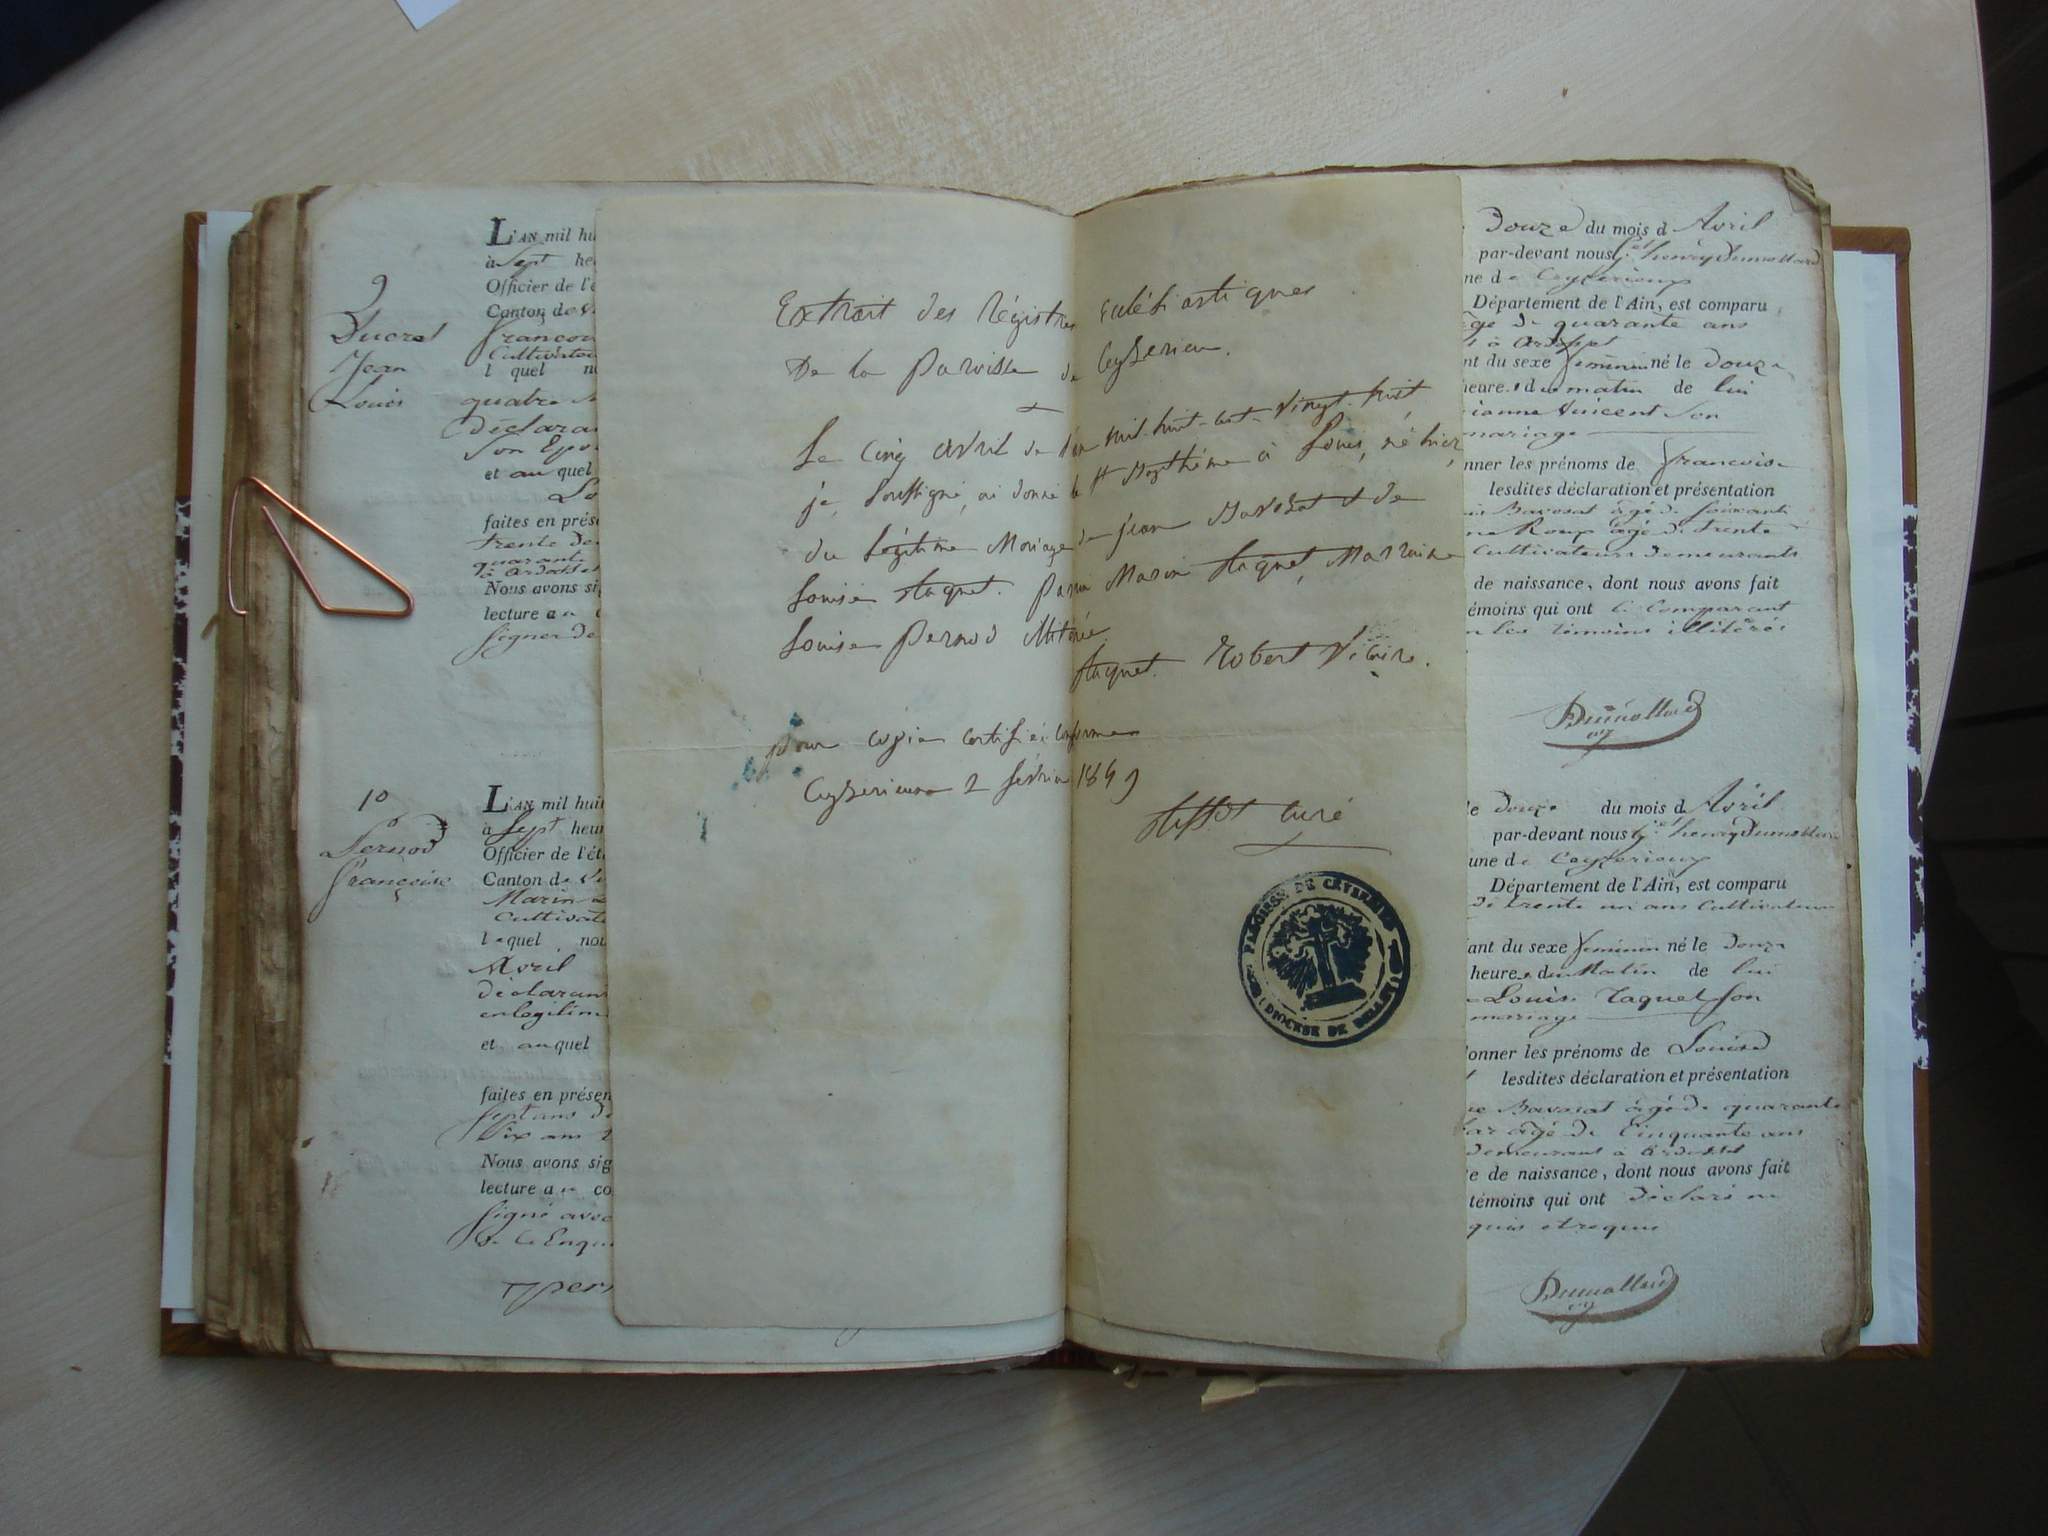 9
Ducret
Jean
Louis
L'AN mil hu
à Sept he
Officier de l'é
Canton de
françou
Cultivateu
l quel no
quatre
déclara
Son Epo
et au quel
Lo
faites en prés
trente de
quarante
Nous avons si
lecture a
signer de
10
Pernod
françoise
L'AN mil hui
à Sept heur
Officier de l'ét
Canton de
Marin
Cultivate
lequel nou
Avril
déclarant
en legitim
et auquel
faites en présen
sept ans d
Dix ans
Nous avons sig
lecture a co
signé avec
de ce Enqui
per
Extrait des Régistres Ecclésiastiques
De la paroisse de Ceyzerieu.
Le cinq avril de l'an mil-huit-cent-vingt-huit
je, soussigné, ai donné le St Baptême à Louis, né hier,
du légitime Mariage de jean Bavozat et de
Louise taquet. parrain Marin taquet, Marraine
Louise pernod
taquet. Robert Vicaire.
pour copie certifiée conforme
Ceyzerieu 2 février 1849
curé
PAROISSE DE CEYZERIEU
DIOCESE DE BELLEY
douze du mois d Avril
par-devant nous henry Dumollard
ne de Ceyzerieux
Département de l'Ain, est comparu
âge de quarante ans
nt du sexe feminin né le douze
heure du matin de lui
ianne Vincent Son
mariage
nner les prénoms de francoise
lesdites déclaration et présentation
Bavosat âgé de soixante
ne Roux âgé de trente
Cultivateurs demeurants
de naissance, dont nous avons fait
émoins qui ont le comparant
les témoins illitérés
Dumollard
le douze du mois d Avril
par-devant nous henry Dumollard
une de Ceyzerieux
Département de l'Ain, est comparu
de trente un ans Cultivateur
ant du sexe feminin né le Douze
heure du Matin de lui
Louise Taquet Son
mariage
onner les prénoms de Louise
lesdites déclaration et présentation
Bavosat âgé de quarante
âgé de Cinquante ans
demeurant à
e de naissance, dont nous avons fait
témoins qui ont déclaré ne
quis et requis
Dumollard